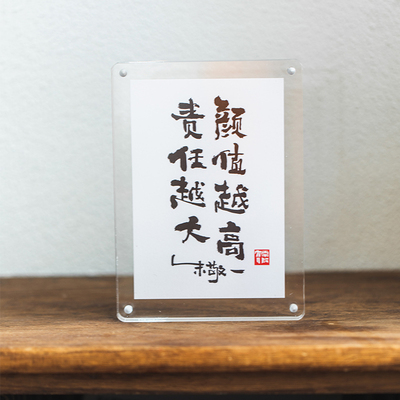 颜值越高
责任越大
朱敬一